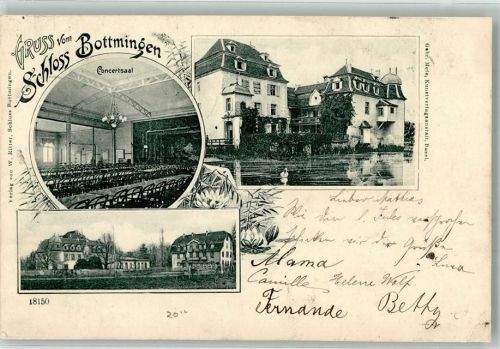 Gruss vom
Schloss Bottmingen
Concertsaal
Verlag von W. Ritter, Schloss Bottmingen.
Gebr. Metz, Kunstverlagsanstalt, Basel.
Lieber Mathias
wir die Grüße
Mama
Camille Helene Wolf
Fernande Betty
18150
20.-